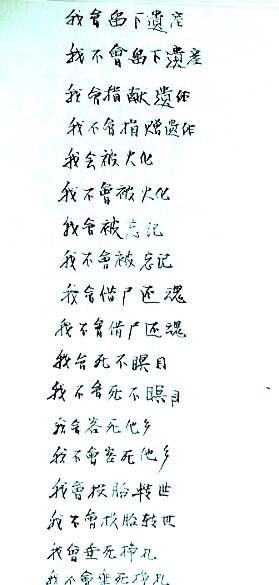 我會留下遺産
我不會留下遺産
我會捐献遺体
我不會捐赠遺体
我会被火化
我不會被火化
我會被忘记
我不會被忘记
我會借尸还魂
我不會借尸还魂
我会死不瞑目
我不會死不瞑目
我會客死他乡
我不會客死他乡
我會投胎转世
我不會投胎转世
我會垂死掙扎
我不會垂死掙扎